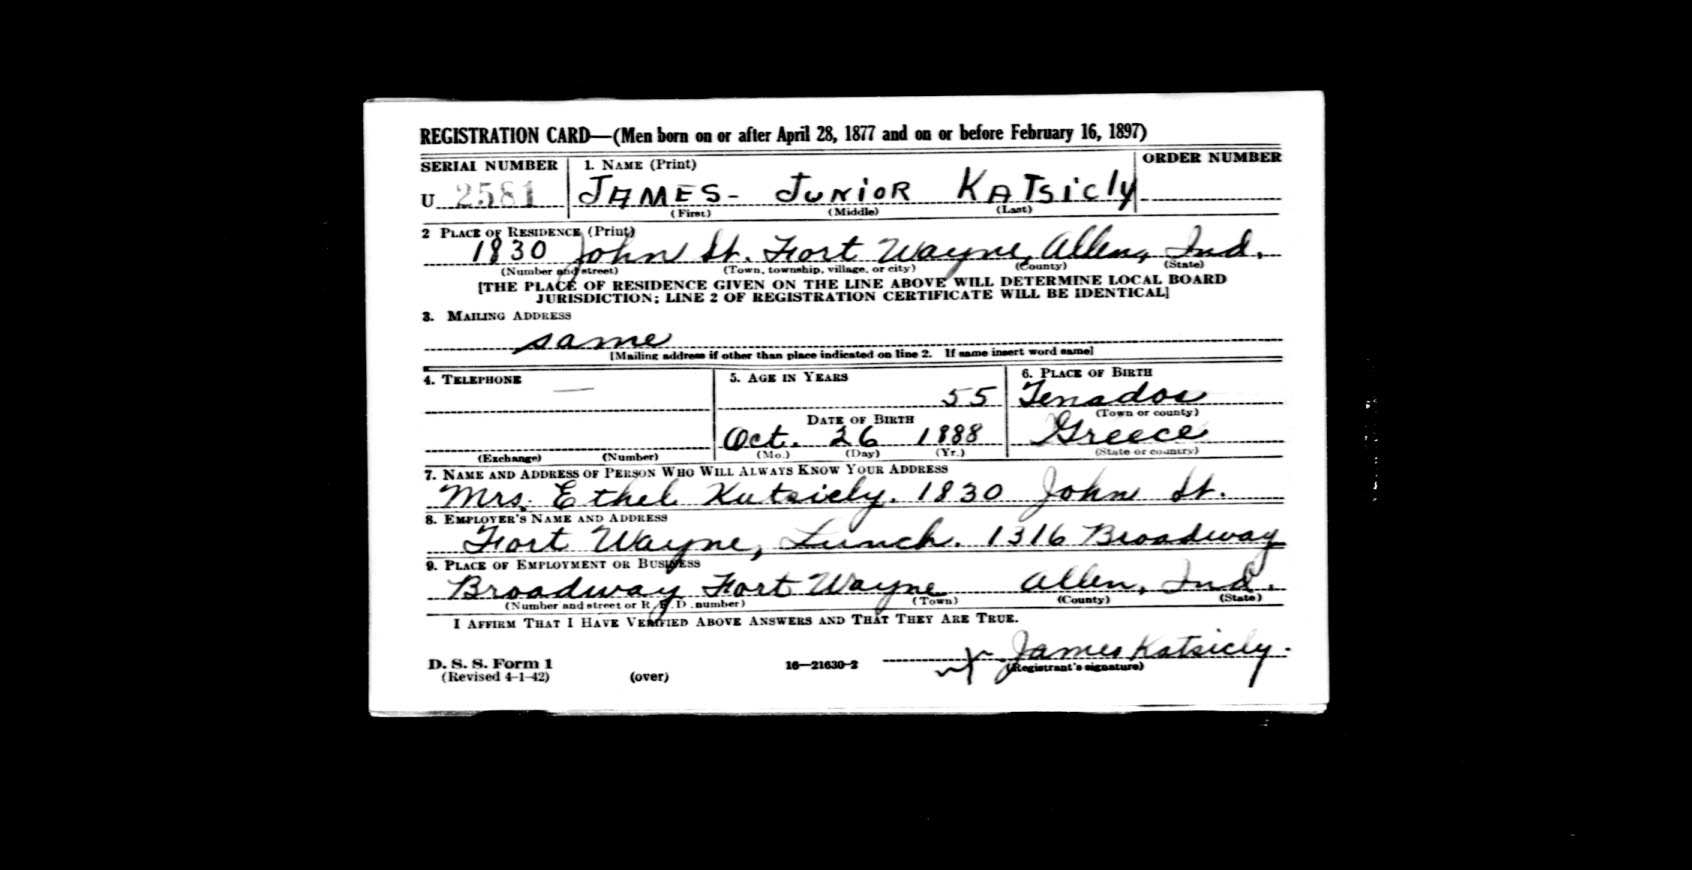 REGISTRATION CARD—(Men born on or after April 28, 1877 and on or before February 16, 1897)
SERIAL NUMBER 1. NAME (Print) ORDER NUMBER
U 2581 JAMES- JUNIOR KATSICLY
(First) (Middle) (Last)
2 PLACE OF RESIDENCE (Print)
1830 John St. Fort Wayne, Allen, Ind.
(Number and street) (Town, township, village, or city) (County) (State)
[THE PLACE OF RESIDENCE GIVEN ON THE LINE ABOVE WILL DETERMINE LOCAL BOARD
JURISDICTION; LINE 2 OF REGISTRATION CERTIFICATE WILL BE IDENTICAL]
3. MAILING ADDRESS
same
[Mailing address if other than place indicated on line 2. If same insert word same]
4. TELEPHONE 5. AGE IN YEARS 6. PLACE OF BIRTH
— 55 Tenados
DATE OF BIRTH (Town or county)
Oct. 26 1888 Greece
(Exchange) (Number) (Mo.) (Day) (Yr.) (State or country)
7. NAME AND ADDRESS OF PERSON WHO WILL ALWAYS KNOW YOUR ADDRESS
Mrs. Ethel Katsicly. 1830 John St.
8. EMPLOYER'S NAME AND ADDRESS
Fort Wayne, Lunch. 1316 Broadway
9. PLACE OF EMPLOYMENT OR BUSINESS
Broadway Fort Wayne Allen, Ind.
(Number and street or R. F. D. number) (Town) (County) (State)
I AFFIRM THAT I HAVE VERIFIED ABOVE ANSWERS AND THAT THEY ARE TRUE.
James Katsicly.
D. S. S. Form 1 16—21630-2 (Registrant's signature)
(Revised 4-1-42) (over)